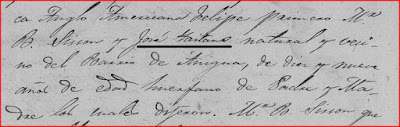 ca Anglo Americana Felipe primero
B. Sison y José Taitano natural y veci-
no del Barrio de Anigua, de diez y nueve
años de edad huerfano de Padre y Ma-
dre los cuales dijeron. B. Sison que